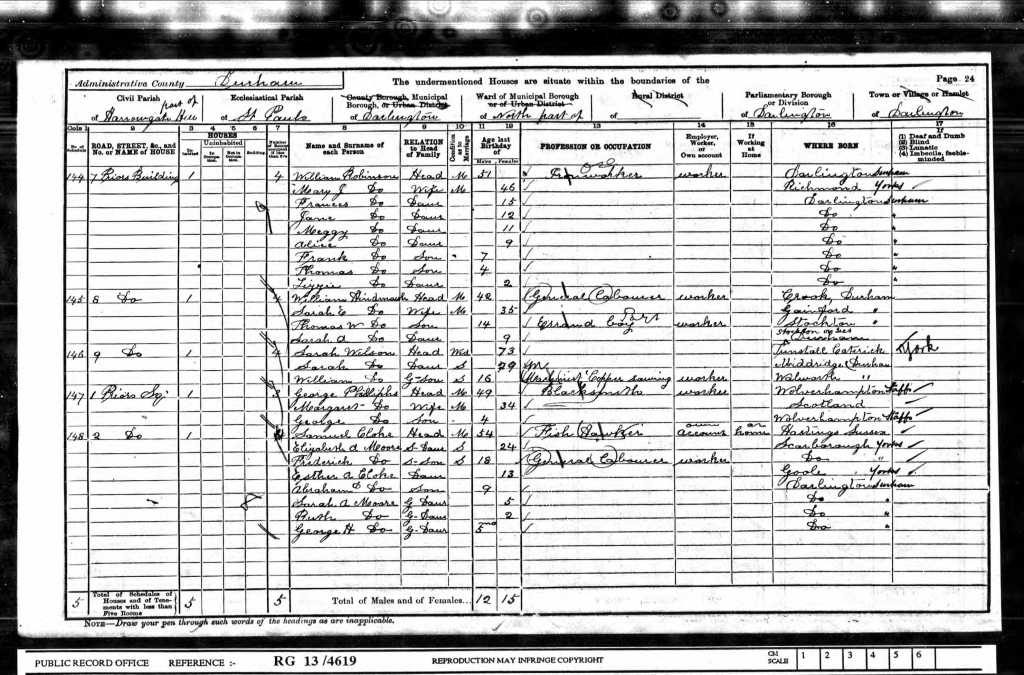 Administrative County Durham The undermentioned Houses are situate within the boundaries of the Page 24
Civil Parish Ecclesiastical Parish County Borough, Municipal Borough, or Urban District Ward of Municipal Borough or of Urban District Rural District Parliamentary Borough or Division Town or Village or Hamlet
part of
of Harrowgate Hill of St Pauls of Darlington of North part of of of Darlington of Darlington
Cols 1 2 3 4 5 6 7 8 9 10 11 12 13 14 15 16 17
No. of Schedule ROAD, STREET, &c., and No. or NAME of HOUSE HOUSES Inhabited Uninhabited In Occupation Not in Occupation Building Name and Surname of each Person RELATION to Head of Family Condition as to Marriage Age last Birthday of Males Females PROFESSION OR OCCUPATION Employer, Worker, or Own account If Working at Home WHERE BORN If (1) Deaf and Dumb (2) Blind (3) Lunatic (4) Imbecile, feeble-minded
144 7 Priors Building 1 4 William Robinson Head M 51 worker Darlington Durham
Mary J Do Wife M 46 Richmond Yorks
Frances Do Daur 15 Darlington Durham
Jane Do Daur 12 Do "
Meggy Do Daur 11 Do "
Alice Do Daur 9 Do "
Frank Do Son 7 Do "
Thomas Do Son 4 Do "
Lizzie Do Daur 2 Do "
145 8 Do 1 4 William Hindmarsh Head M 42 General Labourer worker Crook, Durham
Sarah E Do Wife M 35 Gainford "
Thomas W Do Son 14 Errand boy worker Stockton "
Sarah A Do Daur 9 Stockton on Tees Durham
146 9 Do 1 4 Sarah Wilson Head Wid 73 Tunstall Caterick York
Sarah Do Daur S 29 Middridge Durham
William Do G-Son S 16 Copper sawing worker Walworth "
147 1 Priors Sq. 1 3 George Phillips Head M 49 Blacksmith worker Wolverhampton Staffs
Margaret Do Wife M 34 Scotland
George Do Son 4 Wolverhampton Staffs
148 2 Do 1 Samuel Cloke Head M 54 Fish Hawker own account at home Hastings Sussex
Elizabeth A Moore S-Daur S 24 Scarborough Yorks
Frederick Do S-Son S 18 General Labourer worker Do "
Esther A Cloke Daur 13 Goole Yorks
Abraham Do Son 9 Darlington Durham
Sarah A Moore G Daur 5 Do "
Ruth Do G-Daur 2 Do "
George H Do G-Daur 5 mo Do "
5 Total of Schedules of Houses and of Tenements with less than Five Rooms 5 5 Total of Males and of Females... 12 15
NOTE—Draw your pen through such words of the headings as are inapplicable.
PUBLIC RECORD OFFICE REFERENCE :- RG 13/4619 REPRODUCTION MAY INFRINGE COPYRIGHT CM SCALE 1 2 3 4 5 6